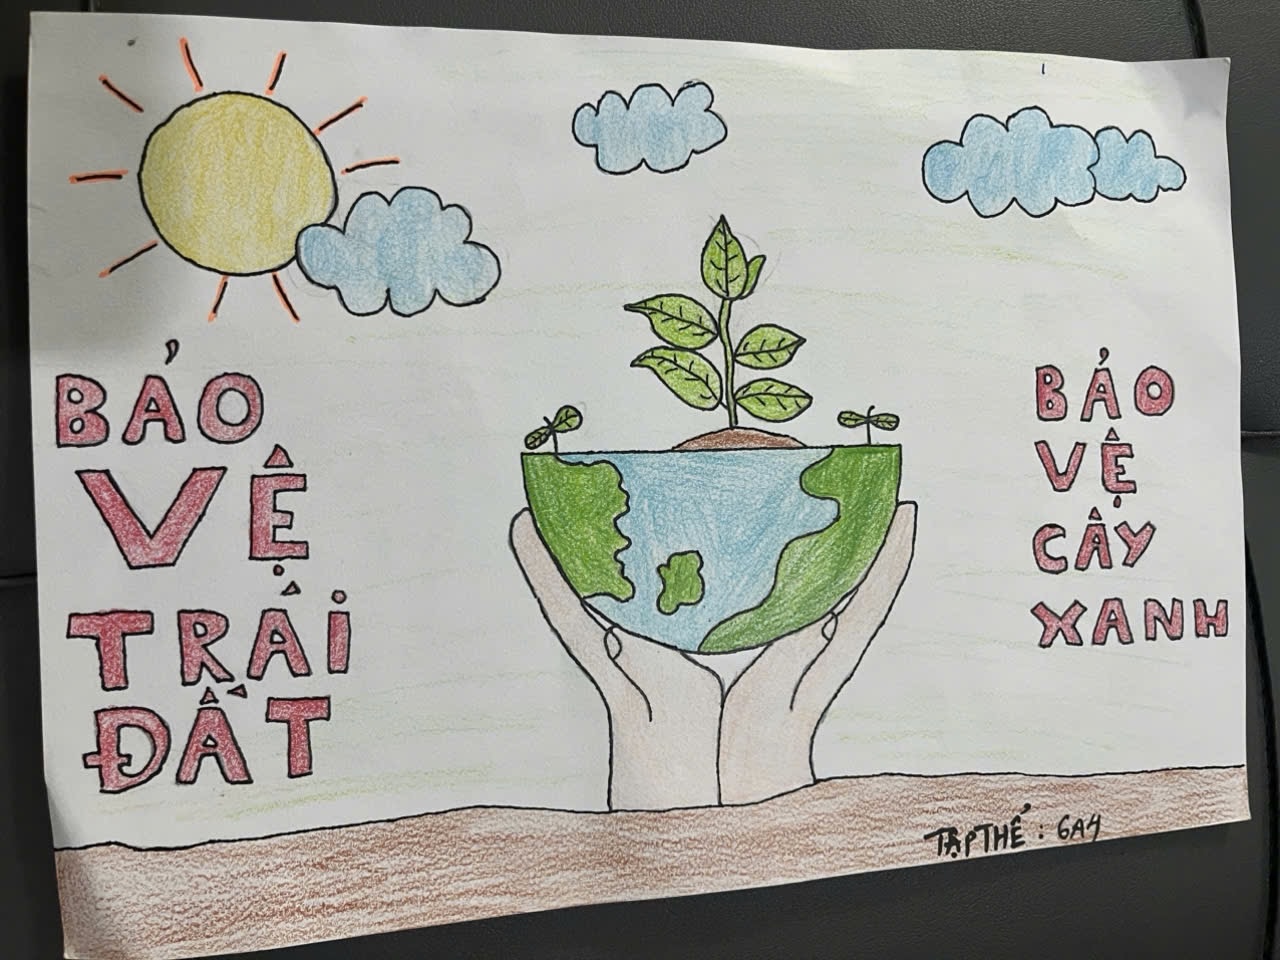 BẢO
VỆ
TRÁI
ĐẤT
BẢO
VỆ
CÂY
XANH
TẬP THỂ : 6A4